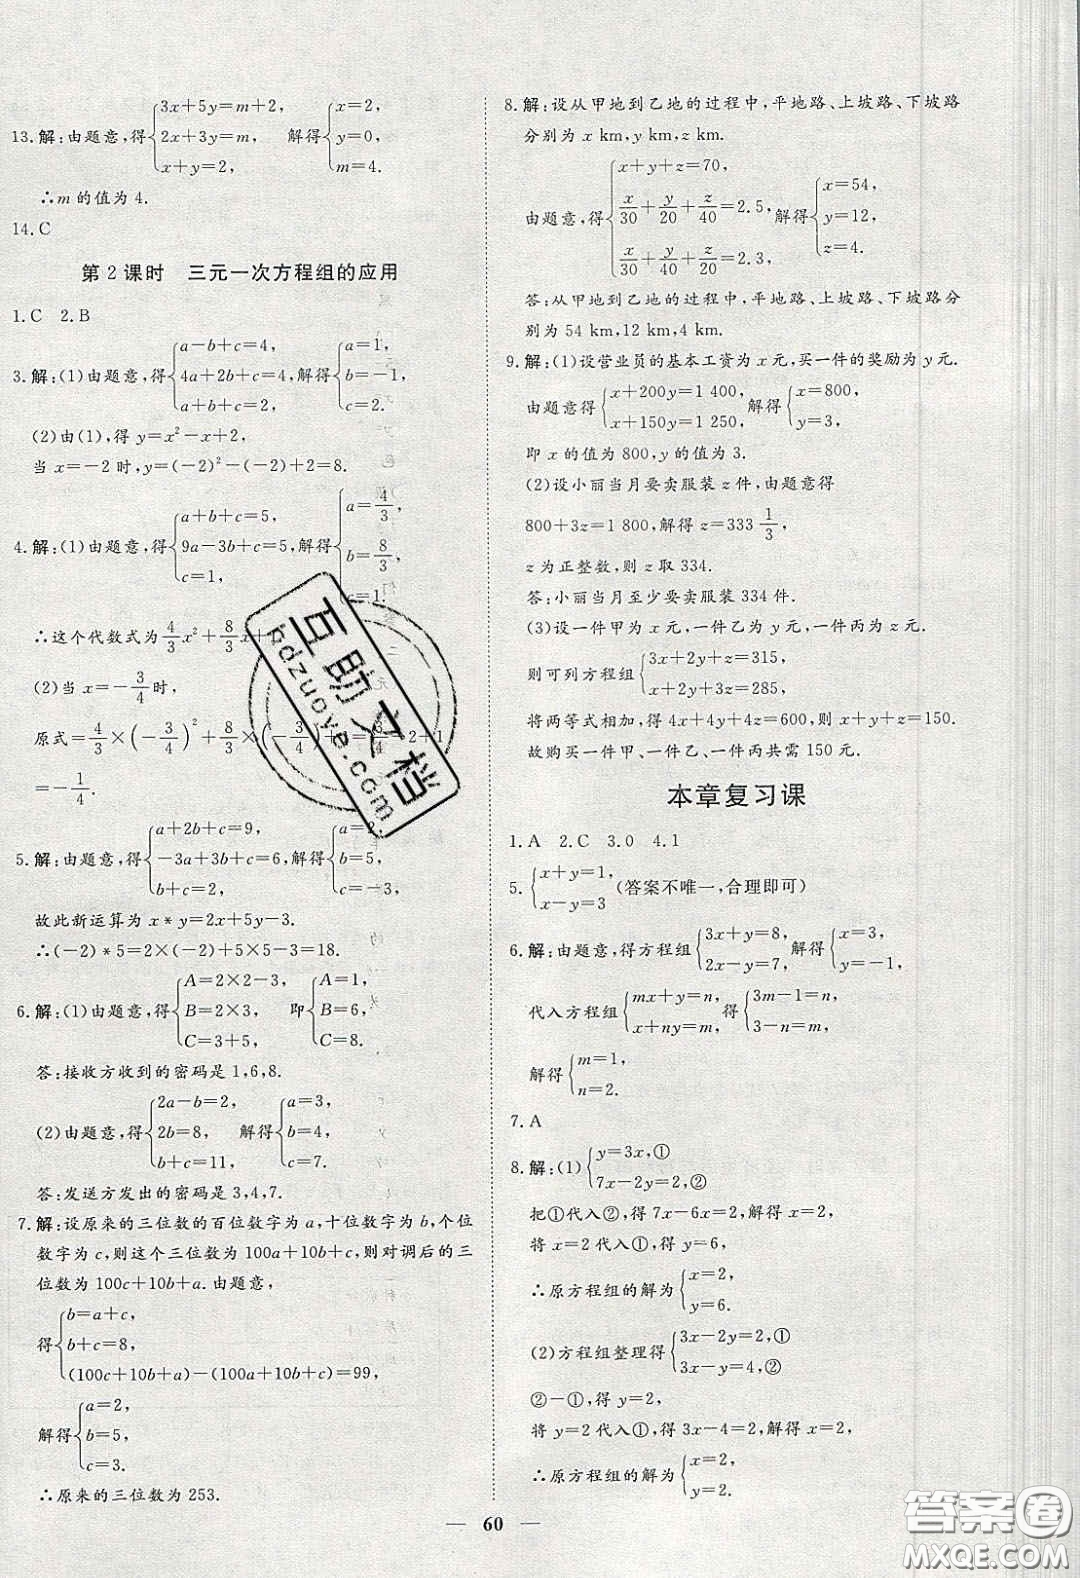 13.解:由题意,得{3x+5y=m+2, 2x+3y=m, x+y=2, 解得{x=2, y=0, m=4.
∴m 的值为 4.
14.C
第 2 课时　三元一次方程组的应用
1.C　2.B
3.解:(1)由题意,得{a-b+c=4, 4a+2b+c=4, a+b+c=2, 解得{a=1, b=-1, c=2.
(2)由(1),得 y=x²-x+2,
当 x=-2 时,y=(-2)²-(-2)+2=8.
4.解:(1)由题意,得{a+b+c=5, 9a-3b+c=5, c=1, 解得{a=4/3, b=8/3, c=1.
∴这个代数式为 4/3 x²+8/3 x+
(2)当 x=-3/4 时,
原式=4/3×(-3/4)²+8/3×(-3/4)+1=3/4-2+1
=-1/4.
5.解:由题意,得{a+2b+c=9, -3a+3b+c=6, b+c=2, 解得{a=2, b=5, c=-3.
故此新运算为 x*y=2x+5y-3.
∴(-2)*5=2×(-2)+5×5-3=18.
6.解:(1)由题意,得{A=2×2-3, B=2×3, C=3+5, 即{A=1, B=6, C=8.
答:接收方收到的密码是 1,6,8.
(2)由题意,得{2a-b=2, 2b=8, b+c=11, 解得{a=3, b=4, c=7.
答:发送方发出的密码是 3,4,7.
7.解:设原来的三位数的百位数字为 a,十位数字为 b,个位
数字为 c,则这个三位数为 100a+10b+c,则对调后的三
位数为 100c+10b+a.由题意,
得{b=a+c, b+c=8, (100c+10b+a)-(100a+10b+c)=99,
解得{a=2, b=5, c=3.
∴原来的三位数为 253.
8.解:设从甲地到乙地的过程中,平地路、上坡路、下坡路
分别为 x km,y km,z km.
由题意,得{x+y+z=70, x/30+y/20+z/40=2.5, x/30+y/40+z/20=2.3, 解得{x=54, y=12, z=4.
答:从甲地到乙地的过程中,平地路、上坡路、下坡路分
别为 54 km,12 km,4 km.
9.解:(1)设营业员的基本工资为 x 元,买一件的奖励为 y 元.
由题意得{x+200y=1 400, x+150y=1 250, 解得{x=800, y=3,
即 x 的值为 800,y 的值为 3.
(2)设小丽当月要卖服装 z 件,由题意得
800+3z=1 800,解得 z=333 1/3,
z 为正整数,则 z 取 334.
答:小丽当月至少要卖服装 334 件.
(3)设一件甲为 x 元,一件乙为 y 元,一件丙为 z 元.
则可列方程组{3x+2y+z=315, x+2y+3z=285,
将两等式相加,得 4x+4y+4z=600,则 x+y+z=150.
故购买一件甲、一件乙、一件丙共需 150 元.
本章复习课
1.A　2.C　3.0　4.1
5.{x+y=1, x-y=3 (答案不唯一,合理即可)
6.解:由题意,得方程组{3x+y=8, 2x-y=7, 解得{x=3, y=-1,
代入方程组{mx+y=n, x+ny=m, 得{3m-1=n, 3-n=m,
解得{m=1, n=2.
7.A
8.解:(1){y=3x,① 7x-2y=2,②
把①代入②,得 7x-6x=2,解得 x=2,
将 x=2 代入①,得 y=6,
∴原方程组的解为{x=2, y=6.
(2)方程组整理得{3x-2y=2,① 3x-y=4,②
②-①,得 y=2,
将 y=2 代入①,得 3x-4=2,解得 x=2,
∴原方程组的解为{x=2, y=2.
60
互助文档
hdzuoye.com
答案圈
MXQE.COM